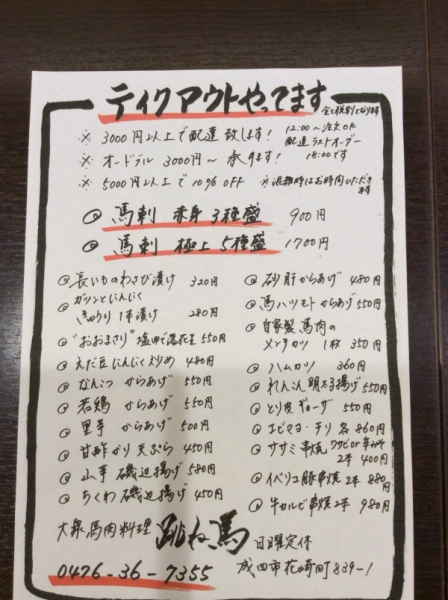 テイクアウトやってます 全て税別となります
※ 3000円以上で配達致します! 12:00〜注文OK
※ オードブル 3000円〜 承ります! 配達ラストオーダー 18:00です
※ 5000円以上で 10% OFF ※混雑時はお時間いただきます
◎ 馬刺 赤身 3種盛 900円
◎ 馬刺 極上 5種盛 1700円
◎ 長いものわさび漬け 320円
◎ ガツンとにんにく
きゅうり 1本漬け 280円
◎ "おおまさり" 塩ゆで落花生 550円
◎ えだ豆にんにく炒め 480円
◎ なんこつ からあげ 550円
◎ 若鶏 からあげ 550円
◎ 里芋 からあげ 500円
◎ 甘酢がり 天ぷら 450円
◎ 山芋 磯辺揚げ 580円
◎ ちくわ 磯辺揚げ 450円
◎ 砂肝からあげ 480円
◎ 馬ハツモトからあげ 550円
◎ 自家製 馬肉の
メンチカツ 1枚 350円
◎ ハムカツ 360円
◎ れんこん明太子揚げ 550円
◎ とり皮ギョーザ 550円
◎ エビマヨ・チリ 各860円
◎ ササミ串焼
2本 400円
◎ イベリコ豚串焼 2本 880円
◎ 牛カルビ串焼 2本 980円
大衆馬肉料理 跳ね馬 日曜定休
0476-36-7355 成田市花崎町839-1